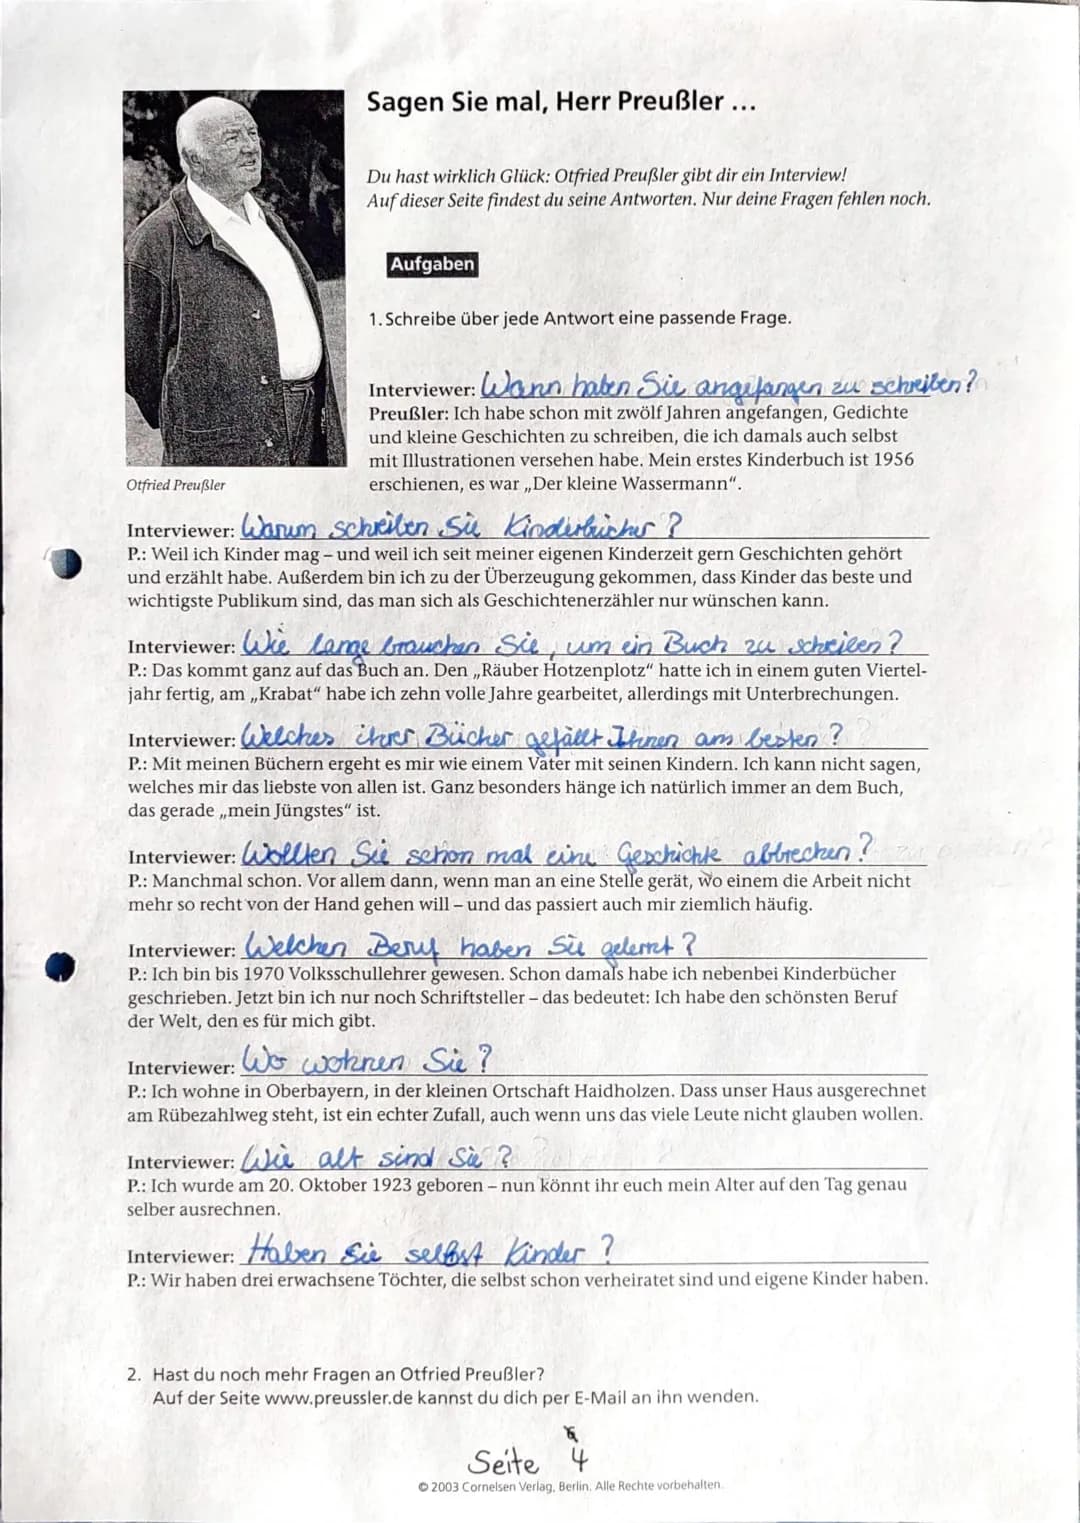 Sagen Sie mal, Herr Preußler ...
Du hast wirklich Glück: Otfried Preußler gibt dir ein Interview!
Auf dieser Seite findest du seine Antworten. Nur deine Fragen fehlen noch.
Aufgaben
1. Schreibe über jede Antwort eine passende Frage.
Interviewer: Wann haben Sie angefangen zu schreiben?
Preußler: Ich habe schon mit zwölf Jahren angefangen, Gedichte
und kleine Geschichten zu schreiben, die ich damals auch selbst
mit Illustrationen versehen habe. Mein erstes Kinderbuch ist 1956
erschienen, es war „Der kleine Wassermann“.
Otfried Preußler
Interviewer: Warum schreiben Sie Kinderbücher?
P.: Weil ich Kinder mag – und weil ich seit meiner eigenen Kinderzeit gern Geschichten gehört
und erzählt habe. Außerdem bin ich zu der Überzeugung gekommen, dass Kinder das beste und
wichtigste Publikum sind, das man sich als Geschichtenerzähler nur wünschen kann.
Interviewer: Wie lange brauchen Sie, um ein Buch zu schreiben?
P.: Das kommt ganz auf das Buch an. Den „Räuber Hotzenplotz“ hatte ich in einem guten Viertel-
jahr fertig, am „Krabat“ habe ich zehn volle Jahre gearbeitet, allerdings mit Unterbrechungen.
Interviewer: Welches ihrer Bücher gefällt Ihnen am besten?
P.: Mit meinen Büchern ergeht es mir wie einem Vater mit seinen Kindern. Ich kann nicht sagen,
welches mir das liebste von allen ist. Ganz besonders hänge ich natürlich immer an dem Buch,
das gerade „mein Jüngstes“ ist.
Interviewer: Wollten Sie schon mal eine Geschichte abbrechen?
P.: Manchmal schon. Vor allem dann, wenn man an eine Stelle gerät, wo einem die Arbeit nicht
mehr so recht von der Hand gehen will – und das passiert auch mir ziemlich häufig.
Interviewer: Welchen Beruf haben Sie gelernt?
P.: Ich bin bis 1970 Volksschullehrer gewesen. Schon damals habe ich nebenbei Kinderbücher
geschrieben. Jetzt bin ich nur noch Schriftsteller – das bedeutet: Ich habe den schönsten Beruf
der Welt, den es für mich gibt.
Interviewer: Wo wohnen Sie?
P.: Ich wohne in Oberbayern, in der kleinen Ortschaft Haidholzen. Dass unser Haus ausgerechnet
am Rübezahlweg steht, ist ein echter Zufall, auch wenn uns das viele Leute nicht glauben wollen.
Interviewer: Wie alt sind Sie?
P.: Ich wurde am 20. Oktober 1923 geboren – nun könnt ihr euch mein Alter auf den Tag genau
selber ausrechnen.
Interviewer: Haben Sie selbst Kinder?
P.: Wir haben drei erwachsene Töchter, die selbst schon verheiratet sind und eigene Kinder haben.
2. Hast du noch mehr Fragen an Otfried Preußler?
Auf der Seite www.preussler.de kannst du dich per E-Mail an ihn wenden.
Seite 4
© 2003 Cornelsen Verlag, Berlin. Alle Rechte vorbehalten.